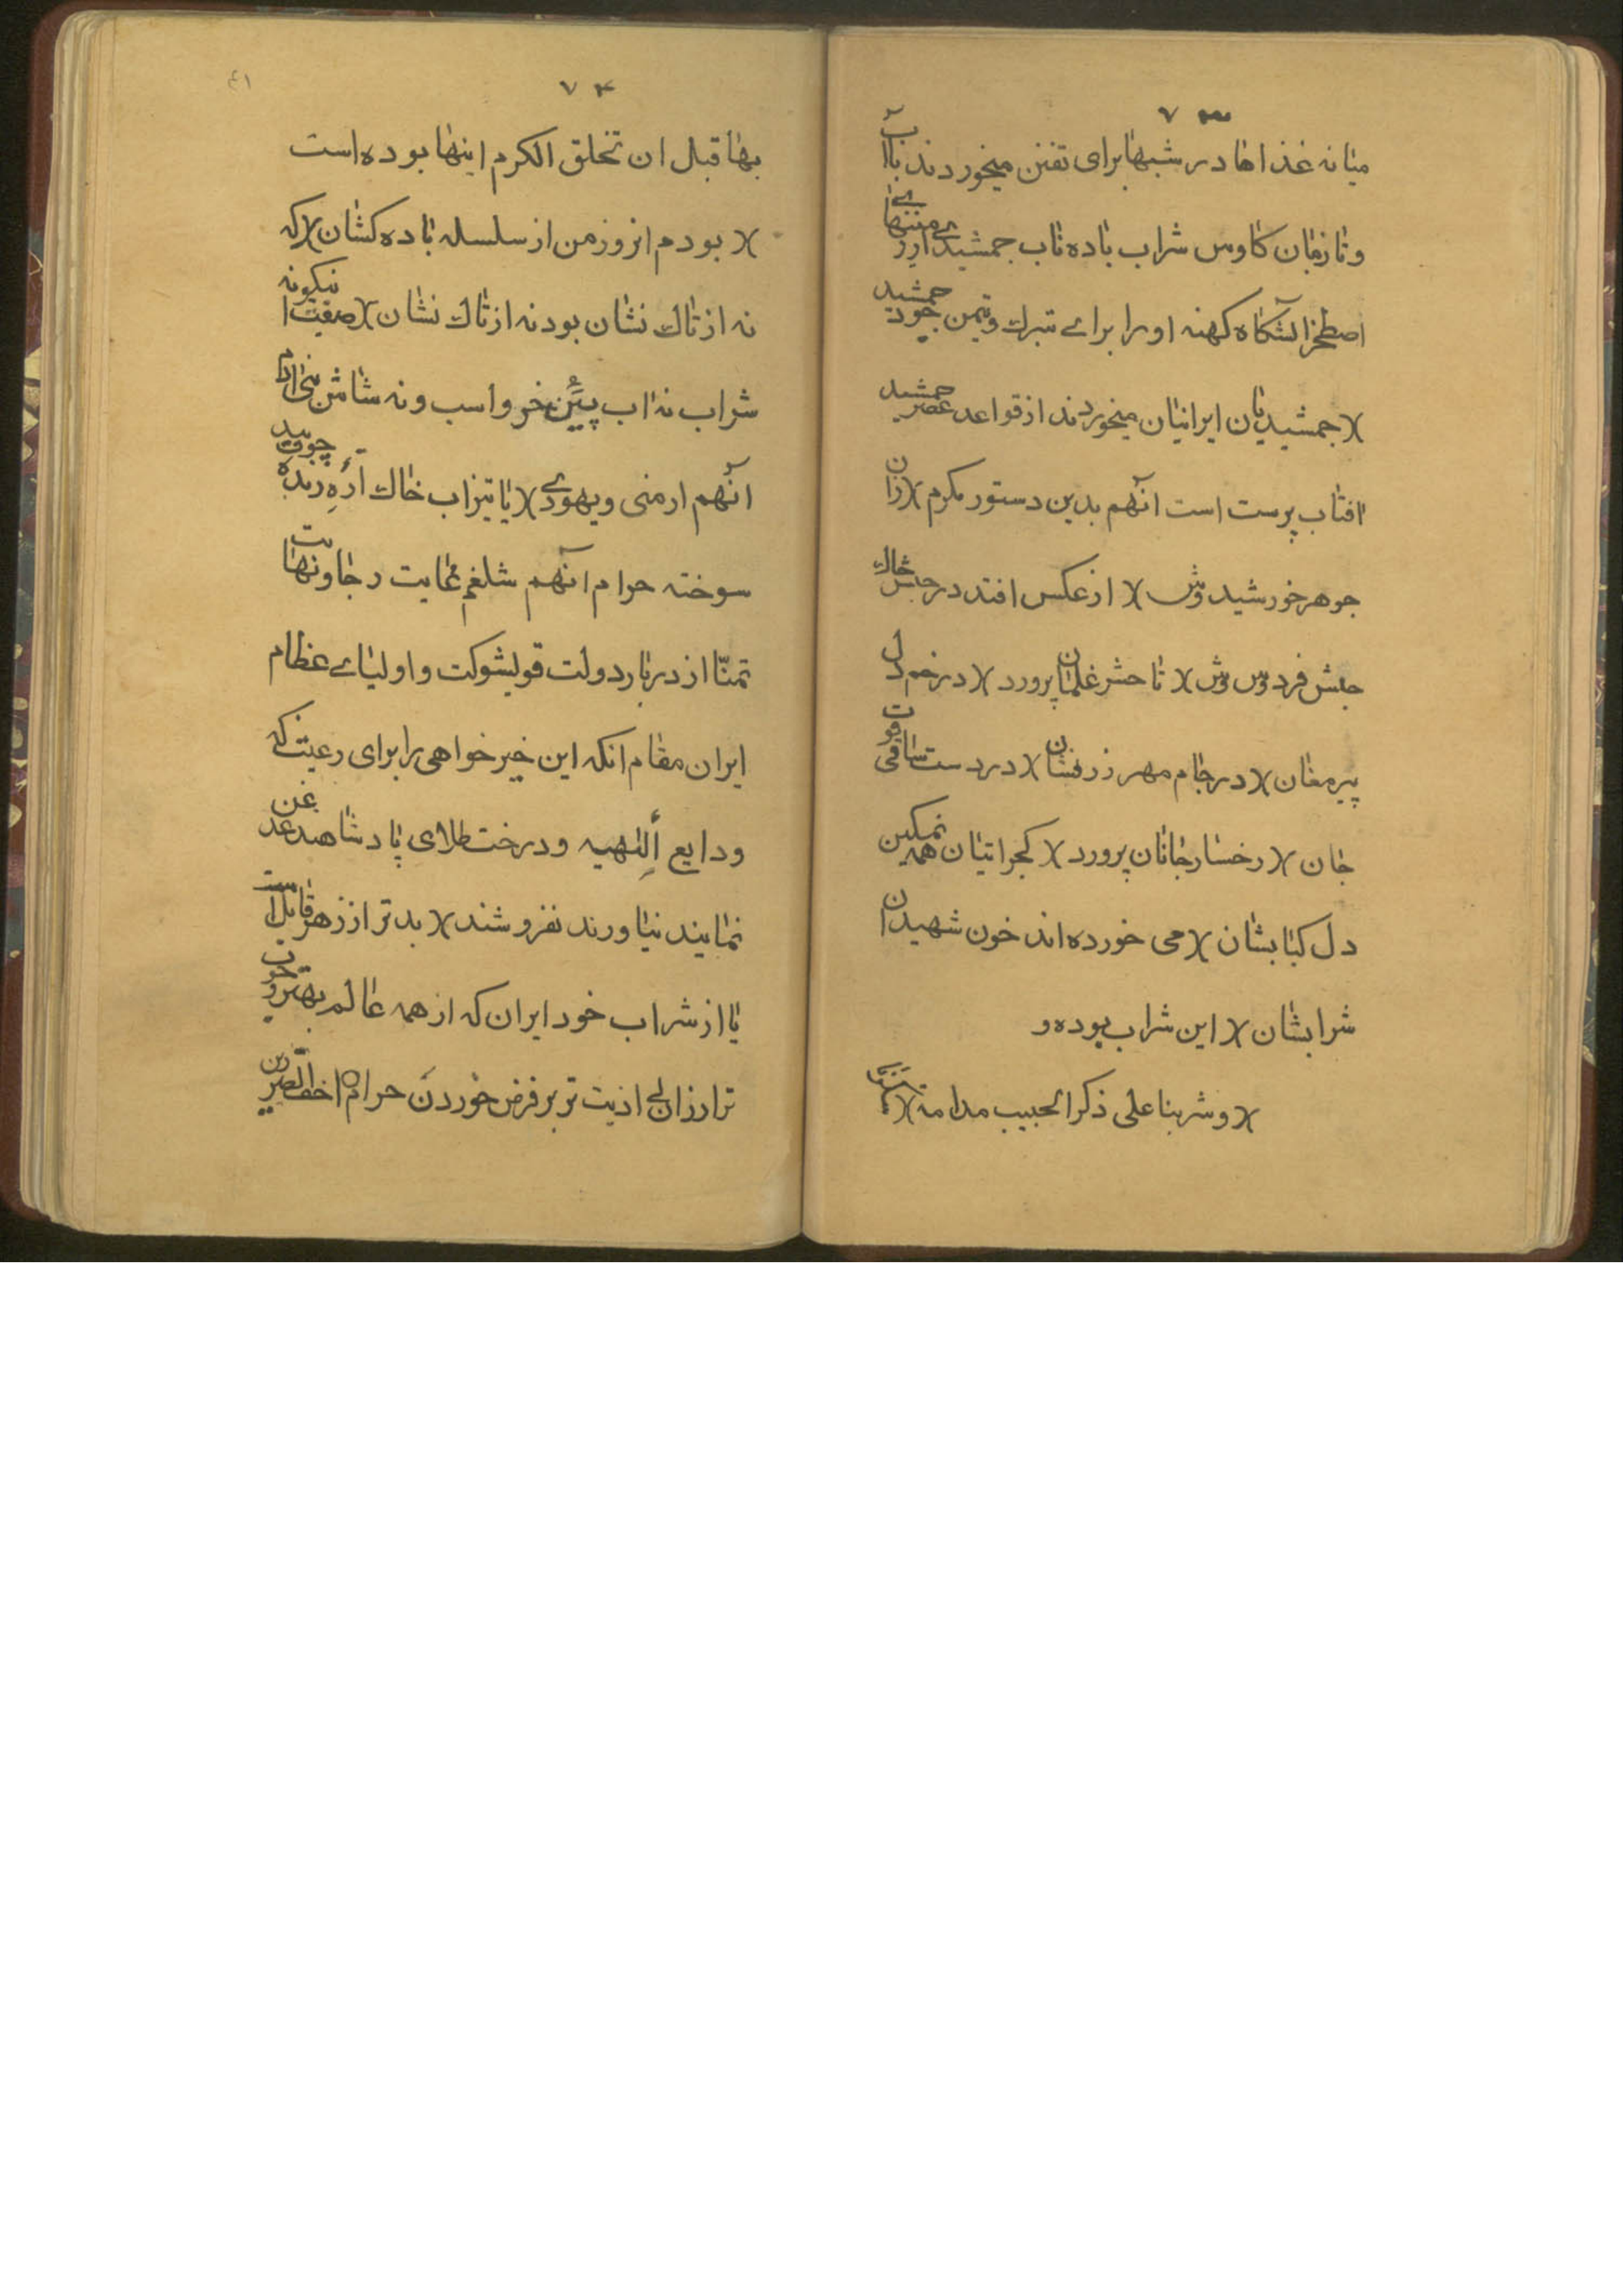 ۷۳
میانه غذاها در شبها برای تفنن میخوردند با آب
و تا زمان کاوس شراب باده ناب جمشیدی منتهای
اصطخر آتشکاه کهنه او را برای تبرك و تیمن جمشید
)( جمشیدیان ایرانیان میخوردند از قواعد عصر جمشید
افتاب پرست است آنهم بدین دستور مکرم )( زان
جوهر خورشید وش )( از عکس افتد در خاك
جبش فردوس وش )( تا حشر غلمان پرورد )( در خم دل
پیر مغان )( در جام مهر زرفشان )( در دست ساقی قوت
جان )( رخسار جانان پرورد )( کجراتیان همه نمکین
دل کبابشان )( می خورده اند خون شهیدان
شرابشان )( این شراب بوده و
)( و شربنا علی ذکر الحبیب مدامة )(
۷۴
۴۱
بها قبل ان تخلق الکرم اینها بوده است
)( بودم انروز من از سلسله باده کشان )( که
نه از تاك نشان بود نه از تاك نشان )( نیکونه
شراب نه اب خر و اسب و نه شاش بنی ادم
آنهم ارمنی و یهودی )( یا تیزاب خاك اره چوب
سوخته حرام آنهم شلغم غایت رجا و نهایت
تمنّا از دربار دولت قویشوکت و اولیای عظام
ایران مقام انکه این خیر خواهی را برای رعیت که
ودایع الٰهیه و درخت طلای پادشاهند غدغن
نمایند نیاورند نفروشند )( بدتر از زهر قابل است
یا از شراب خود ایران که از همه عالم بهتر و خوب
تر ارزان اذیت تر بر فرض خوردن حرام اخف الضررین